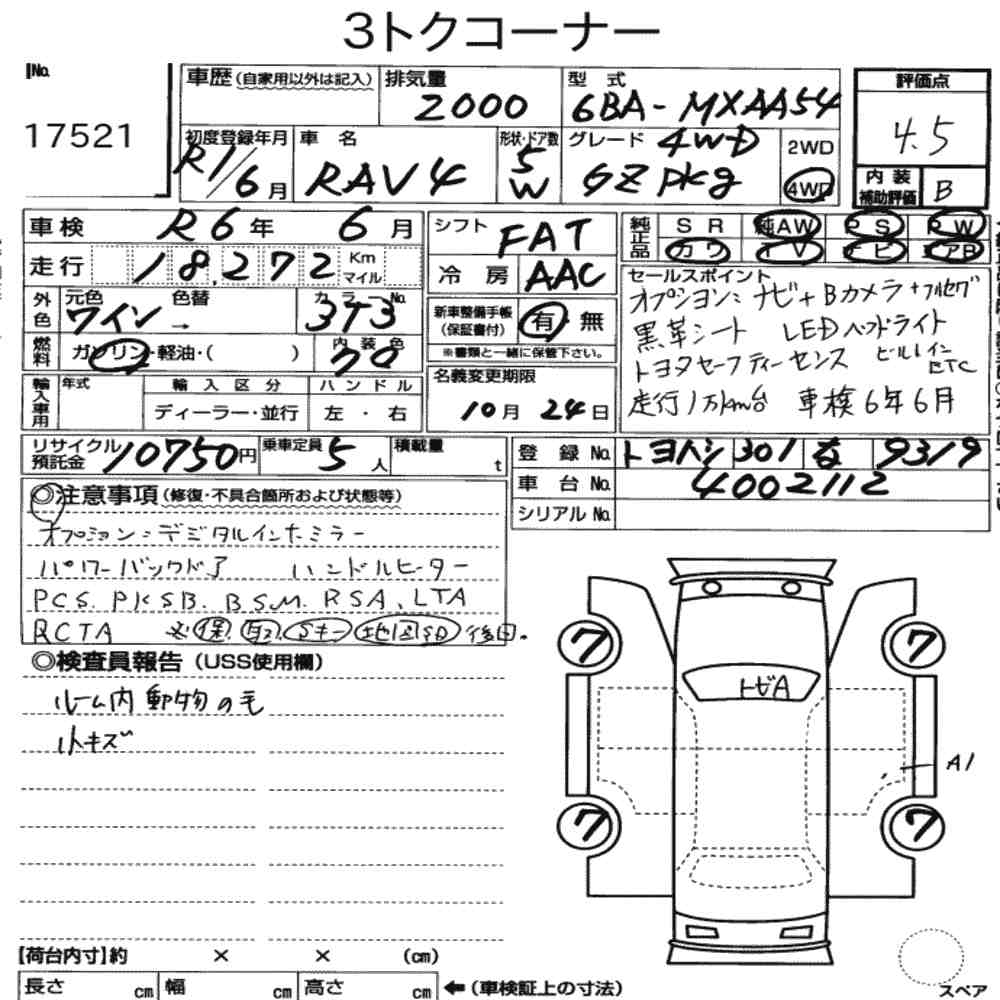 3トクコーナー
No. 17521
車歴 (自家用以外は記入)
排気量 2000
型式 6BA-MXAA54
評価点 4.5
内装補助評価 B
初度登録年月 R1/6月
車名 RAV4
形状・ドア数 5 W
グレード 4WD GZ pkg
2WD
4WD
車検 R6年 6月
走行 18,272 Km マイル
シフト FAT
冷房 AAC
純正品 SR 純AW PS PW
カワ TV ナビ エアB
外色 元色 ワイン 色替 → カラーNo. 3T3
燃料 ガソリン・軽油・( ) 内装色
新車整備手帳(保証書付) 有・無
※書類と一緒に保管下さい。
名義変更期限
10月 24日
輸入車用 年式 輸入区分 ハンドル
ディーラー・並行 左・右
セールスポイント
オプション:ナビ+Bカメラ+フルセグ
黒革シート LEDヘッドライト
トヨタセーフティーセンス ビルトインETC
走行1万km台 車検6年6月
リサイクル預託金 10750円 乗車定員 5人 積載量 t
登録No. トヨハシ 301 な 9319
車台No. 4002112
シリアルNo.
◎注意事項 (修復・不具合箇所および状態等)
オプション:デジタルインナーミラー
パワーバックドア ハンドルヒーター
PCS. PKSB. BSM. RSA. LTA
RCTA ※保 取 Sキー 地図SD 後日。
◎検査員報告 (USS使用欄)
ルーム内動物の毛
小キズ
トビA
7
7
A1
7
7
【荷台内寸】約 × × (cm)
長さ cm 幅 cm 高さ cm ←(車検証上の寸法)
スペア